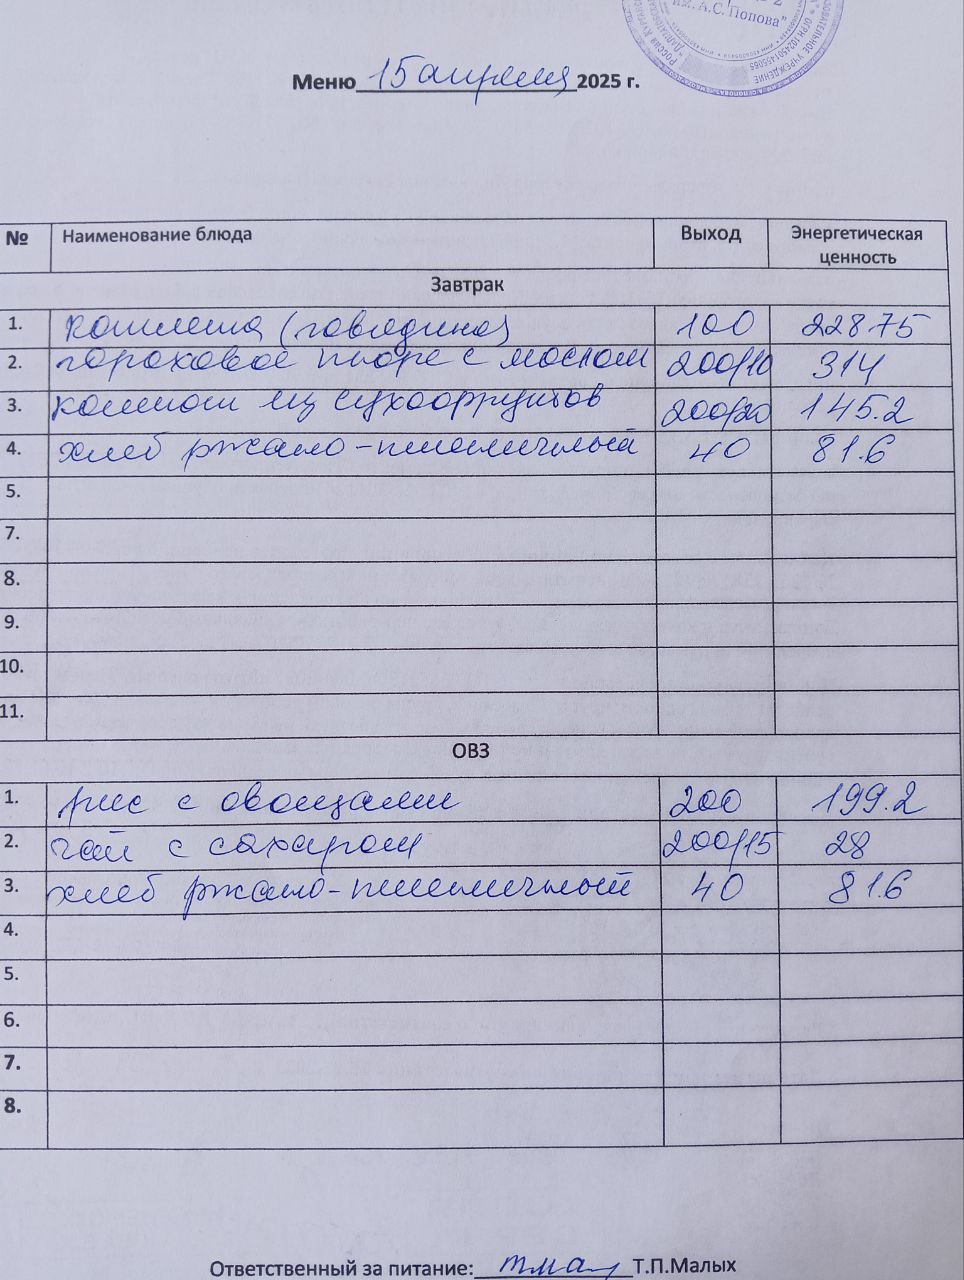 им. А.С. Попова"
Меню 15 апреля 2025 г.
№ Наименование блюда Выход Энергетическая ценность
Завтрак
1. котлета (говядина) 100 228.75
2. гороховое пюре с маслом 200/10 314
3. компот из сухофруктов 200/20 145.2
4. хлеб ржано-пшеничный 40 81.6
5.
7.
8.
9.
10.
11.
ОВЗ
1. рис с овощами 200 199.2
2. чай с сахаром 200/15 28
3. хлеб ржано-пшеничный 40 81.6
4.
5.
6.
7.
8.
Ответственный за питание: Т.П.Малых